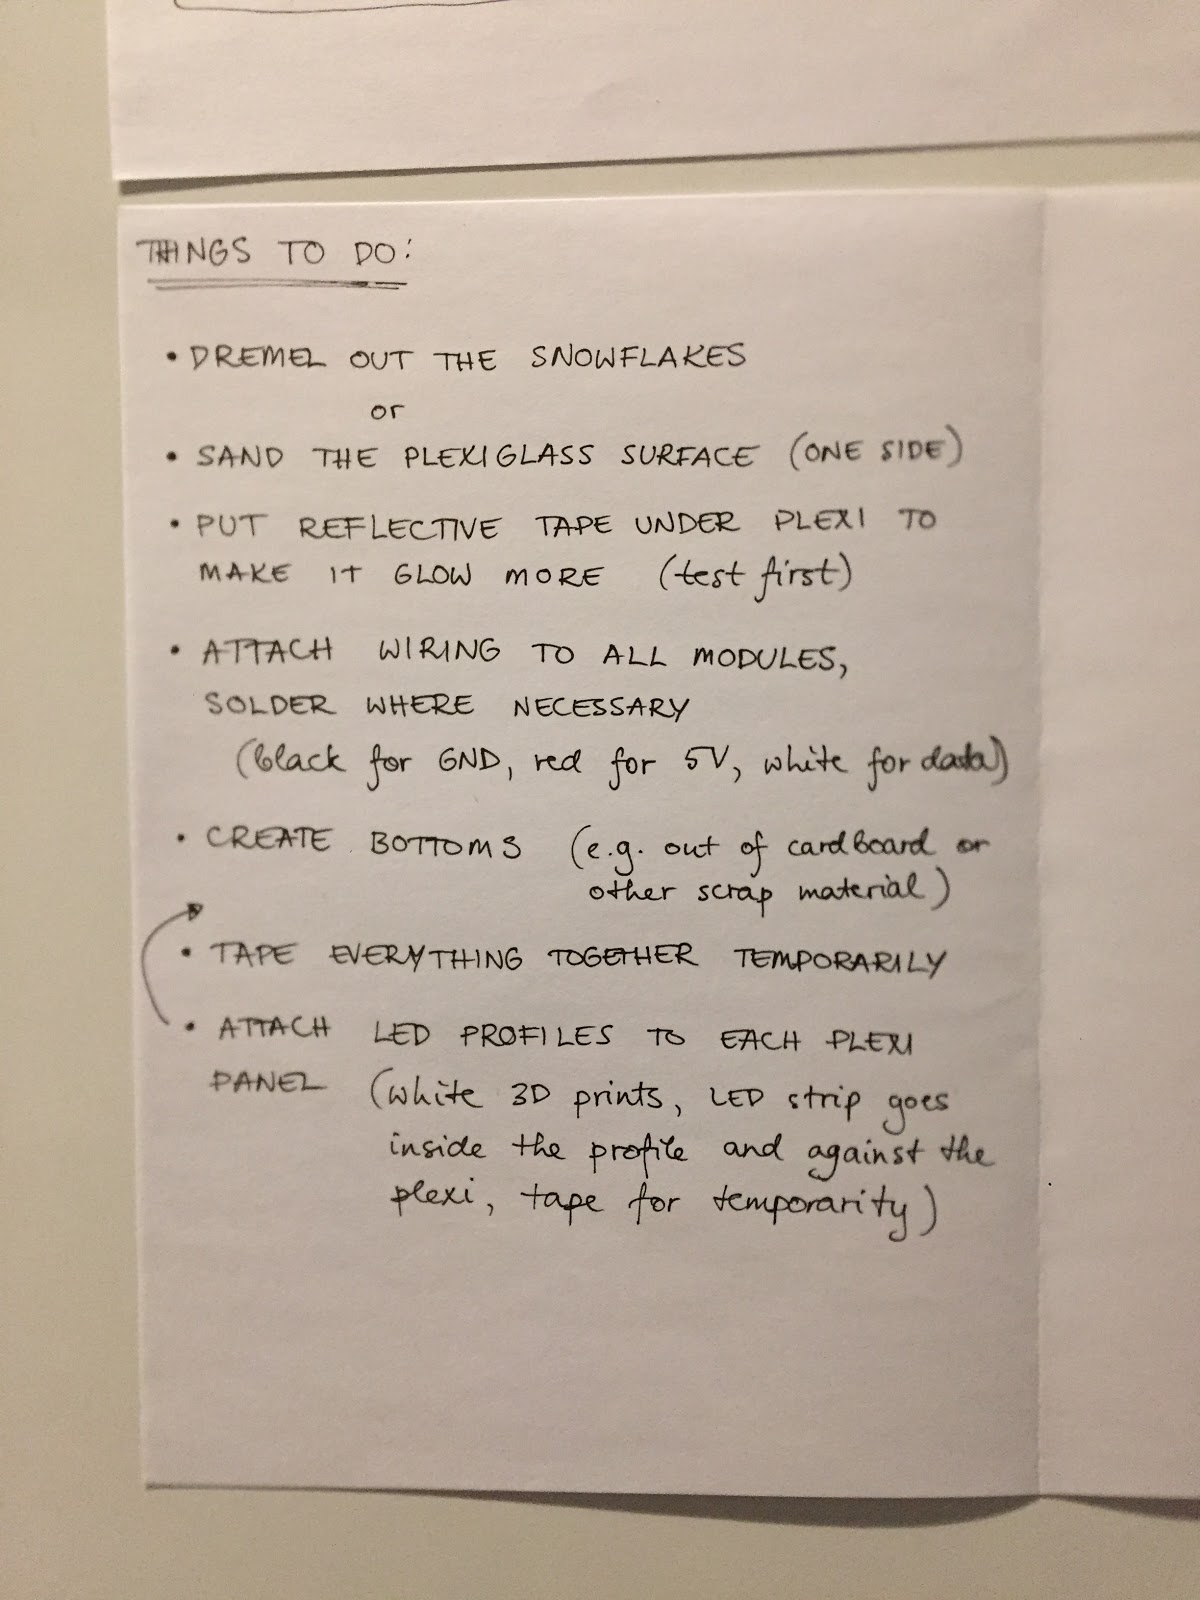 THINGS TO DO:
• DREMEL OUT THE SNOWFLAKES
or
• SAND THE PLEXIGLASS SURFACE (ONE SIDE)
• PUT REFLECTIVE TAPE UNDER PLEXI TO
MAKE IT GLOW MORE (test first)
• ATTACH WIRING TO ALL MODULES,
SOLDER WHERE NECESSARY
(black for GND, red for 5V, white for data)
• CREATE BOTTOMS (e.g. out of cardboard or
other scrap material)
• TAPE EVERYTHING TOGETHER TEMPORARILY
• ATTACH LED PROFILES TO EACH PLEXI
PANEL (white 3D prints, LED strip goes
inside the profile and against the
plexi, tape for temporarity)